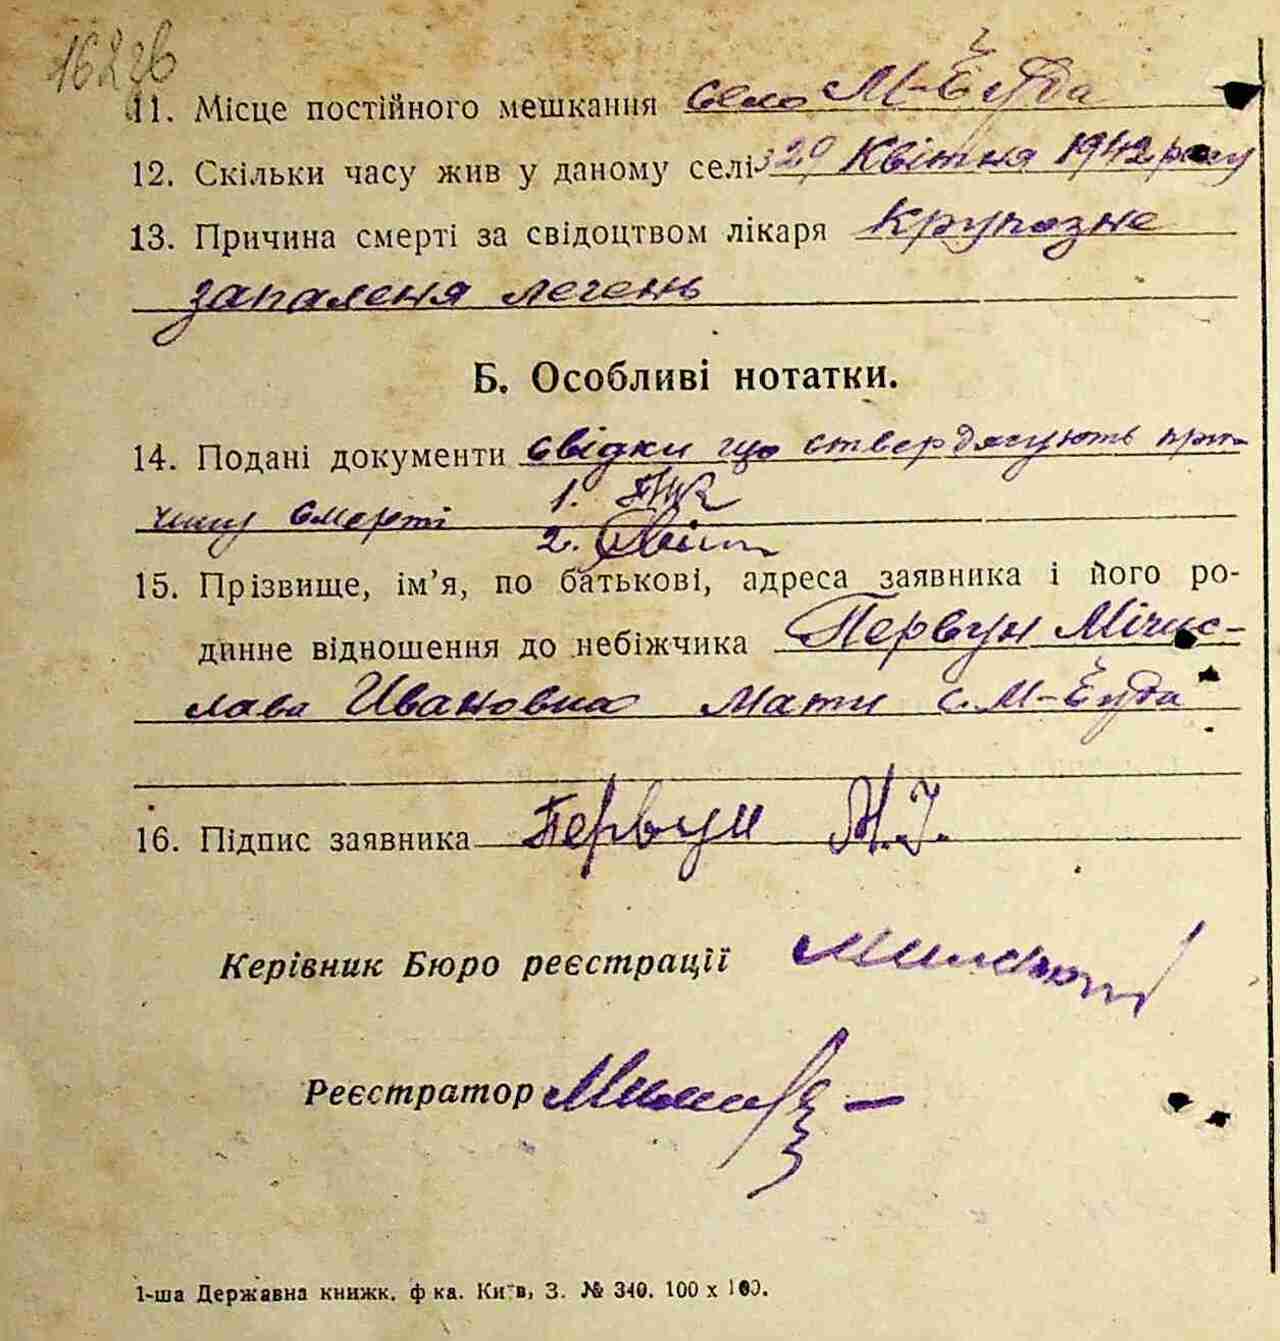 162 зв
11. Місце постійного мешкання село М-Буда
12. Скільки часу жив у даному селі з 20 Квітня 1942 року
13. Причина смерті за свідоцтвом лікаря Крупозне
запаленя легень
Б. Особливі нотатки.
14. Подані документи свідки що ствердяжують при-
чину смерті 1.
2.
15. Прізвище, ім’я, по батькові, адреса заявника і його ро-
динне відношення до небіжчика Первун Мічис-
лава Ивановна Мати с. М-Буда
16. Підпис заявника Первун М.І.
Керівник Бюро реєстрації
Реєстратор
1-ша Державна книжк. ф-ка. Київ, З. № 340. 100 х 100.